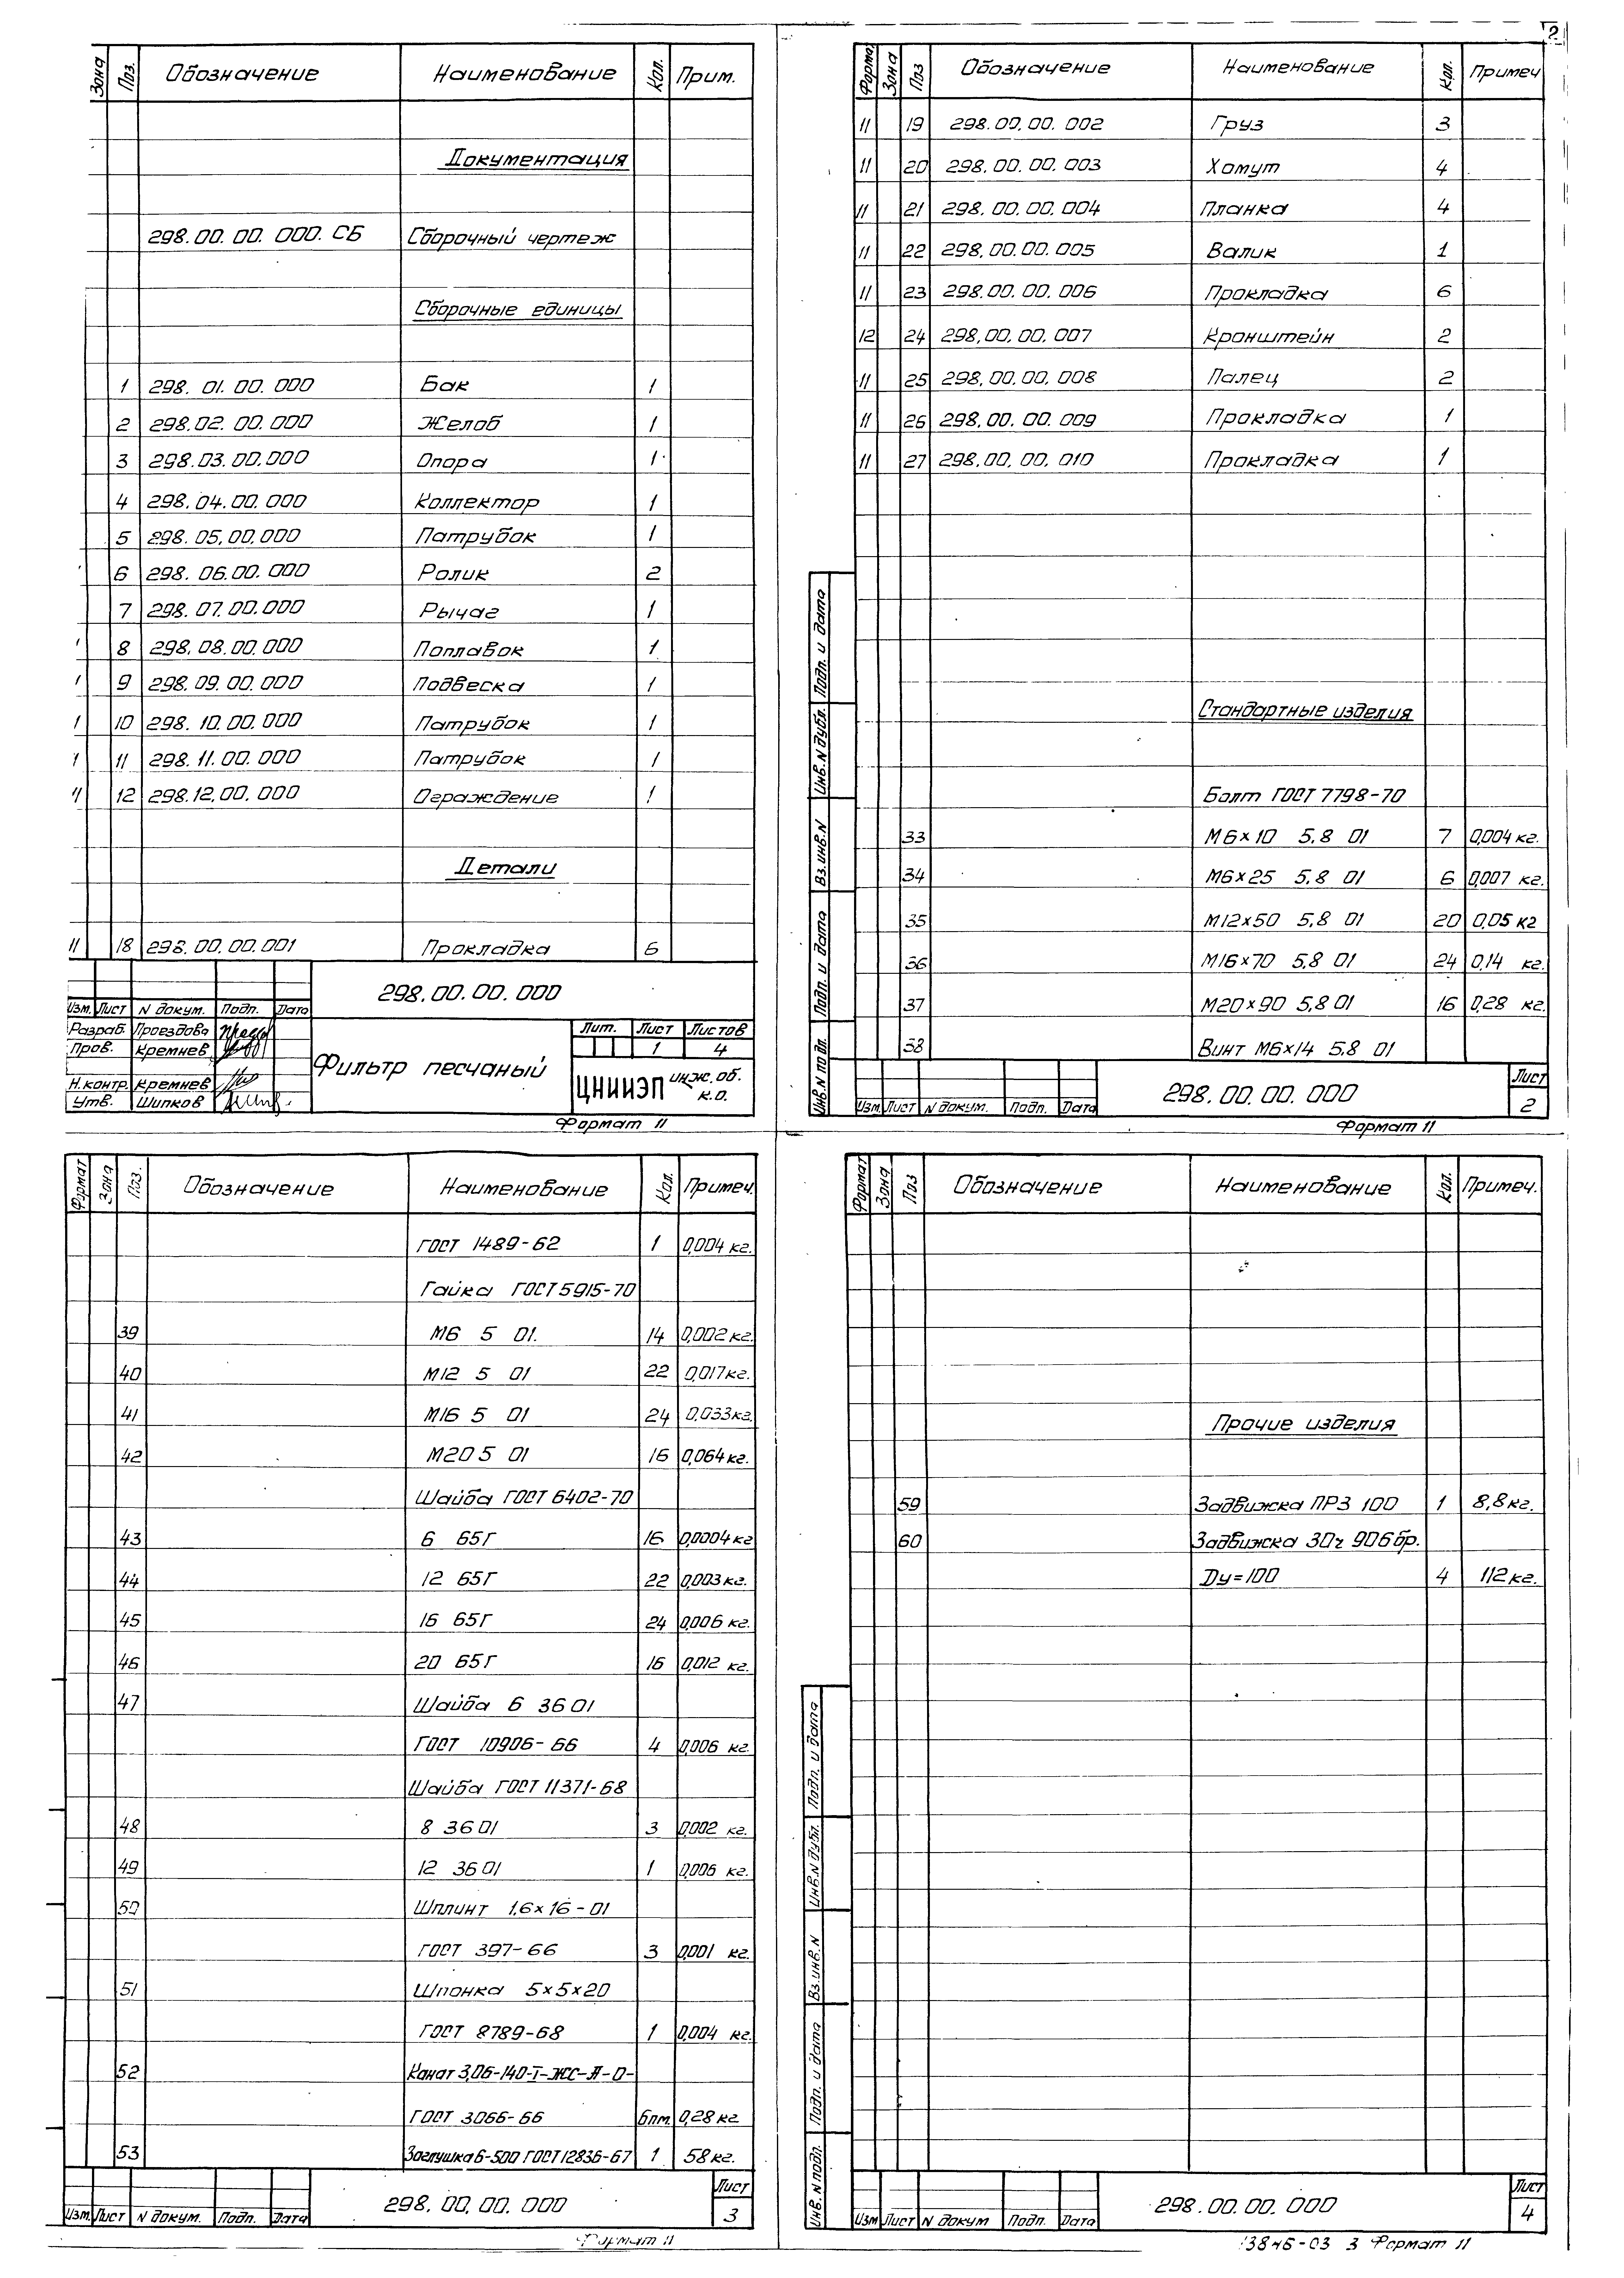 2
Зона Поз. Обозначение Наименование Кол. Прим.
Документация
298.00.00.000.СБ Сборочный чертеж
Сборочные единицы
1 298.01.00.000 Бак 1
2 298.02.00.000 Желоб 1
3 298.03.00.000 Опора 1
4 298.04.00.000 Коллектор 1
5 298.05.00.000 Патрубок 1
6 298.06.00.000 Ролик 2
7 298.07.00.000 Рычаг 1
8 298.08.00.000 Поплавок 1
9 298.09.00.000 Подвеска 1
10 298.10.00.000 Патрубок 1
11 298.11.00.000 Патрубок 1
11 12 298.12.00.000 Ограждение 1
Детали
11 18 298.00.00.001 Прокладка 6
298.00.00.000
Изм. Лист N докум. Подп. Дата
Разраб. Проездова
Пров. Кремнев
Н.контр. Кремнев
Утв. Шипков
Фильтр песчаный
Лит. Лист Листов
1 4
ЦНИИЭП инж.об.
к.о.
Формат 11
Формат Зона Поз Обозначение Наименование Кол. Примеч
11 19 298.00.00.002 Груз 3
11 20 298.00.00.003 Хомут 4
11 21 298.00.00.004 Планка 4
11 22 298.00.00.005 Валик 1
11 23 298.00.00.006 Прокладка 6
12 24 298.00.00.007 Кронштейн 2
11 25 298.00.00.008 Палец 2
11 26 298.00.00.009 Прокладка 1
11 27 298.00.00.010 Прокладка 1
Стандартные изделия
Болт ГОСТ 7798-70
33 М6×10 5,8 01 7 0,004 кг.
34 М6×25 5,8 01 6 0,007 кг.
35 М12×50 5,8 01 20 0,05 кг
36 М16×70 5,8 01 24 0,14 кг.
37 М20×90 5,8 01 16 0,28 кг.
38 Винт М6×14 5.8 01
Инв.N подл. Подп. и дата Вз.инв.N Инв.N дубл. Подп. и дата
Изм. Лист N докум. Подп. Дата
298.00.00.000
Лист
2
Формат 11
Формат Зона Поз. Обозначение Наименование Кол. Примеч.
ГОСТ 1489-62 1 0,004 кг.
Гайка ГОСТ 5915-70
39 М6 5 01. 14 0,002 кг.
40 М12 5 01 22 0,017 кг.
41 М16 5 01 24 0,033 кг.
42 М20 5 01 16 0,064 кг.
Шайба ГОСТ 6402-70
43 6 65Г 16 0,0004 кг
44 12 65Г 22 0,003 кг.
45 16 65Г 24 0,006 кг.
46 20 65Г 16 0,012 кг.
47 Шайба 6 36 01
ГОСТ 10906-66 4 0,006 кг.
Шайба ГОСТ 11371-68
48 8 36 01 3 0,002 кг.
49 12 36 01 1 0,006 кг.
50 Шплинт 1,6×16-01
ГОСТ 397-66 3 0,001 кг.
51 Шпонка 5×5×20
ГОСТ 8789-68 1 0,004 кг.
52 Канат 3,06-140-I-ЖС-Л-О-
ГОСТ 3066-66 6пм. 0,28 кг
53 Заглушка 6-500 ГОСТ 12836-67 1 58 кг.
Изм. Лист N докум. Подп. Дата
298.00.00.000
Лист
3
Формат 11
Формат Зона Поз Обозначение Наименование Кол. Примеч.
Прочие изделия
59 Задвижка ПРЗ 100 1 8,8 кг.
60 Задвижка 30ч 906бр.
Dу=100 4 112 кг.
Инв.N подл. Подп. и дата Вз.инв.N Инв.N дубл. Подп. и дата
Изм Лист N докум Подп. Дата
298.00.00.000
Лист
4
3 Формат 11